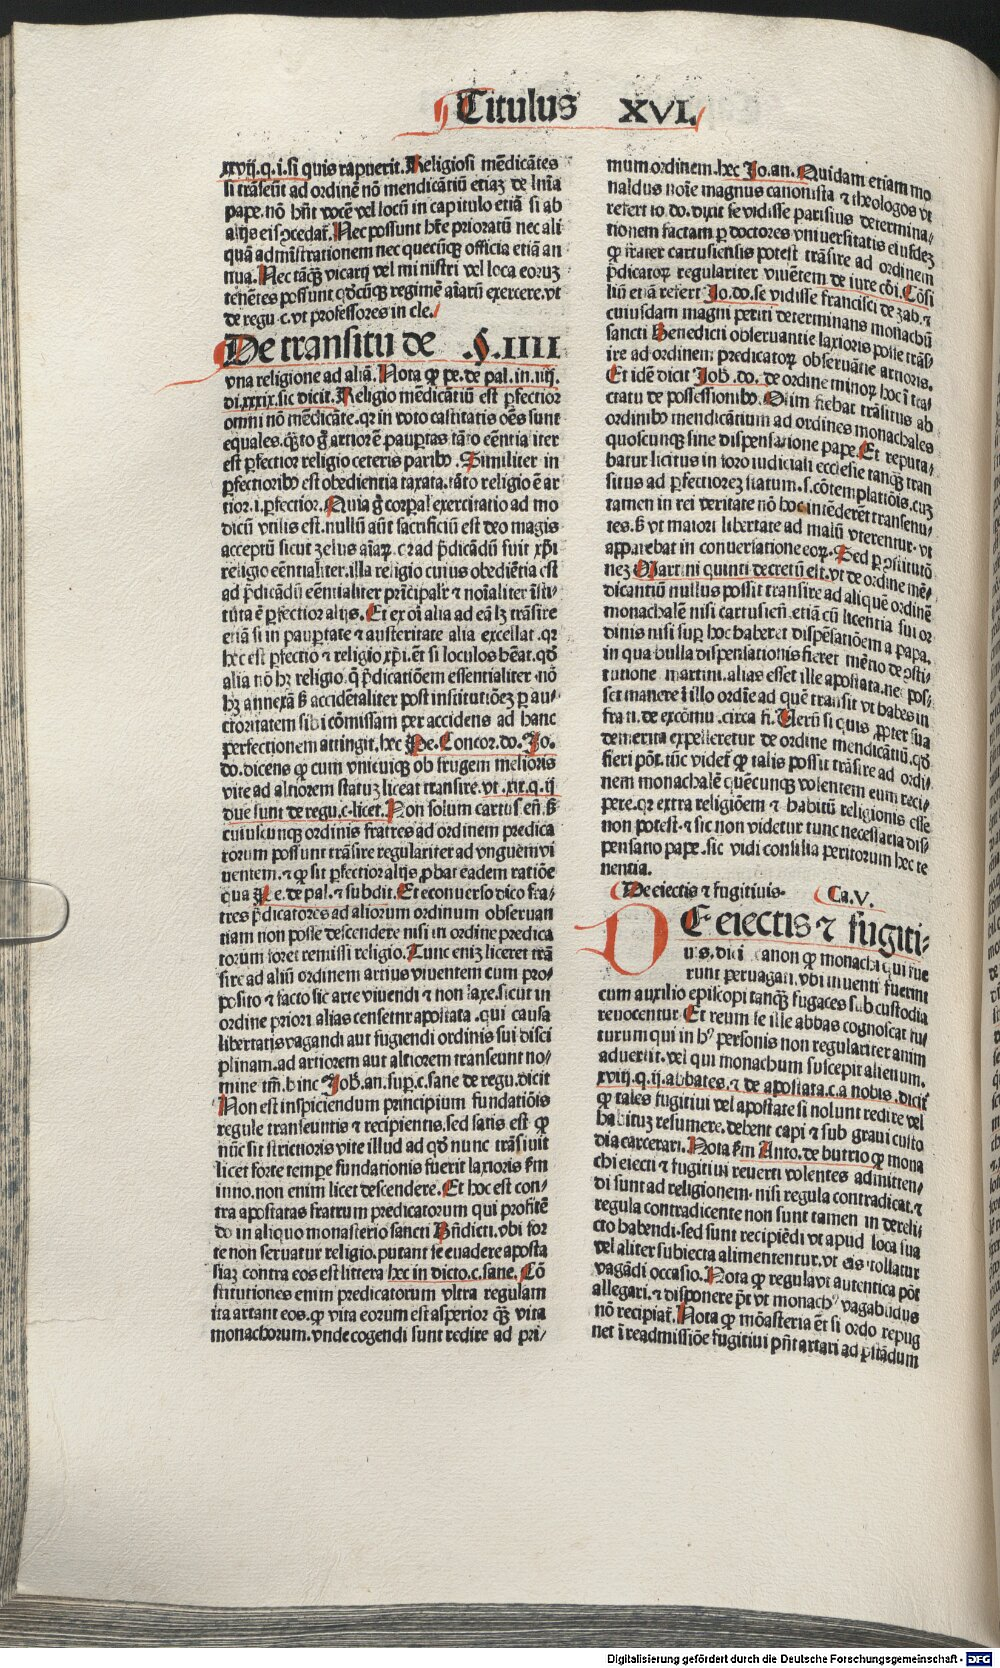 Titulus XVI.
xxvij.q.i.si quis rapuerit. Religiosi mēdicātes
si trāseūt ad ordinē nō mendicātiū etiaz de lnīa
pape.nō hn̄t vocē vel locū in capitulo etiā si ab
alijs eis ꝯcedat᷑. Nec possunt hr̄e prioratū nec ali
quā admīstrationem nec quecūqꝫ officia etiā an
nua. Nec tāqꝫ vicarij vel mi nistri vel loca eoruz
tenētes possunt q̄dcūqꝫ regimē aīarū exercere.vt
de regu.c.vt professores in cle.
De transitu de .§.IIII
vna religione ad aliā. Nota ꝙ pe.de pal.in.iiij.
di.xxxix.sic dicit. Religio mēdicātiū est ꝑfectior
omni nō mēdicāte.qr in voto castitatis oēs sunt
equales.q̄ꝫto g̊ artior ē paup̱tas tāto cēntia iter
est ꝑfectior religio ceteris paribꝰ. Similiter in
ꝑfectioribꝰ est obedientia taxata.tāto religio ē ar
tior.i.ꝑfectior. Quia g̊ corꝑal exercitatio ad mo
dicū vtilis est.nullū aūt sacrificiū est deo magis
acceptū sicut zelus aīaꝝ.c̄ ad p̄dicādū fuit xp̄i
religio eēntialiter.illa religio cuius obediētia est
ad p̄dicādū eēntialiter prīcipalr̄ ⁊ noīaliter īsti⸗
tuta ē ꝑfectior alijs. Et ex oī alia ad eā lꝫ trāsire
etiā si in pauꝑtate ⁊ austeritate alia excellat.qr
hec est ꝑfectio ⁊ religio xp̄i.ēt si loculos hēat.qd̄
alia nō hꝫ religio.q̄ p̄dicatiōem essentialiter.nō
hꝫ annexā sꝫ accidētaliter post institutiōez ꝑ au⸗
ctoritatem sibi cōmissam per accidens ad hanc
perfectionem attingit.hec Pe. Concor.do. Jo.
do.dicens ꝙ cum vnicuiqꝫ ob frugem melioris
vite ad altiorem statuz liceat transire.vt.xix.q.ij
due sunt de regu.c.licet. Non solum cartusieñ.sꝫ
cuiuscunqꝫ ordinis fratres ad ordinem predica
torum possunt trāsire regulariter ad vnguem vi
uentem.⁊ ꝙ sit ꝑfectior alijs ꝓbat eadem ratiōe
qua Pe.de pal.⁊ subdit. Et econuerso dico fra⸗
tres p̄dicatores ad aliorum ordinum obseruan
tiam non posse descendere nisi in ordine predica
torum foret remissi religio. Tunc eniz liceret trā
sire ad aliū ordinem artius viuentem cum pro⸗
posito ⁊ facto sic arte viuendi ⁊ non laxe.sicut in
ordine priori alias censetur apostata.qui causa
libertatis vagandi aut fugiendi ordinis sui disci
plinam.ad artiorem aut altiorem transeunt no⸗
mine tm̄.hinc Joh.an.sup.c.sane de regu.dicit
Non est inspiciendum principium fundatiōis
regule transeuntis ⁊ recipientis.sed satis est ꝙ
nūc sit strictioris vite illud ad qd̄ nunc trāsiuit
licet forte tempe fundationis fuerit laxioris ẜm
inno.non enim licet descendere. Et hoc est con⸗
tra apostatas fratrum predicatorum qui profitē
do in aliquo monasterio sancti Bn̄dicti.vbi for
te non seruatur religio.putant se euadere aposta
siaz contra eos est littera hec in dicto.c.sane. Cō
stitutiones enim predicatorum vltra regulam
ita artant eos.ꝙ vita eorum est asperior q̄ꝫ vita
monachorum.vnde cogendi sunt redire ad pri⸗
mum ordinem.hec Jo.an. Quidam etiam mo
naldus noīe magnus canonista ⁊ theologos vt
refert io.do.dixit se vidisse parisius determina⸗
tionem factam ꝑ doctores vniuersitatis eiusdez
ꝙ frater cartusiensis potest trāsire ad ordinem
p̄dicatoꝝ regulariter viuētem de iure cōi. Cōsi
liū etiā refert Jo.do.se vidisse francisci de zab.⁊
cuiusdam magni periti determinans monachū
sancti Benedicti obseruantie laxioris posse trās⸗
ire ad ordinem predicatoꝝ obseruātie artioris.
Et idē dicit Joh.do.de ordine minoꝝ hoc ī tra⸗
ctatu de possessionibꝰ. Olim fiebat trāsitus ab
ordinibꝰ mendicātium ad ordines monachales
quoscunqꝫ sine dispensatione pape. Et reputa⸗
batur licitus in foro iudiciali ecclesie tanqꝫ tran
situs ad ꝑfectiorez statum.s.cōtemplatiōis.cuz
tamen in rei veritate nō hoc intēderēt transeun⸗
tes.sꝫ vt maiori libertate ad malū vterentur.vt
apparebat in conuersatione eoꝝ. Sed ꝑ ꝯstitutō
nez Martini quinti decretū est.vt de ordine mē⸗
dicantiū nullus possit transire ad aliquē ordinē
monachalē nisi cartusieñ.etiā cū licentia sui or
dinis nisi suꝑ hoc haberet dispēsatiōem a papa.
in qua bulla dispensationis fieret mētio de ꝯsti⸗
tutione martini.alias esset ille apostata.nec pos⸗
set manere ī illo ordīe ad quē transit vt habes in
fra ti.de excōmu.circa fi. Uerū si quis ꝓpter sua
demerita expelleretur de ordine mendicātiū.qd̄
fieri pōt.tūc videt᷑ ꝙ talis possit trāsire ad ordi⸗
nem monachalē quēcunqꝫ volentem eum reci⸗
pere.qr extra religiōem ⁊ habitū religionis esse
non potest.⁊ sic non videtur tunc necessaria dis⸗
pensatio pape.sic vidi consilia peritorum hec te
nentia.
De eiectis ⁊ fugitiuis. Ca.V.
DE eiectis ⁊ fugiti⸗
uis.dici canon ꝙ monachi qui fue
runt peruagati.vbi inuenti fuerint
cum auxilio episcopi tanqꝫ fugaces sub custodia
reuocentur. Et reum se ille abbas cognoscat fu⸗
turum qui in hꝰ personis non regulariter anim
aduertit.vel qui monachum suscepit alienum.
xviij.q.ij.abbates.⁊ de apostata.c.a nobis.dicit᷑
ꝙ tales fugitiui vel apostate si nolunt redire vel
habituz resumere.debent capi ⁊ sub graui custo
dia carcerari. Nota ẜm Anto.de butrio ꝙ mona
chi eiecti ⁊ fugitiui reuerti volentes admitten⸗
di sunt ad religionem.nisi regula contradicat.⁊
regula contradicente non sunt tamen in dereli⸗
cto habendi.sed sunt recipiēdi vt apud loca sua
vel aliter subiecta alimententur.vt eis tollatur
vagādi occasio. Nota ꝙ regula vt autentica pōt
allegari.⁊ disponere p̄t vt monachꝰ vagabūdus
nō recipiat᷑. Nota ꝙ mōasteria ēt si ordo repug
net ī readmissiōe fugitiui pn̄t artari ad ꝑstādum
Digitalisierung gefördert durch die Deutsche Forschungsgemeinschaft - DFG